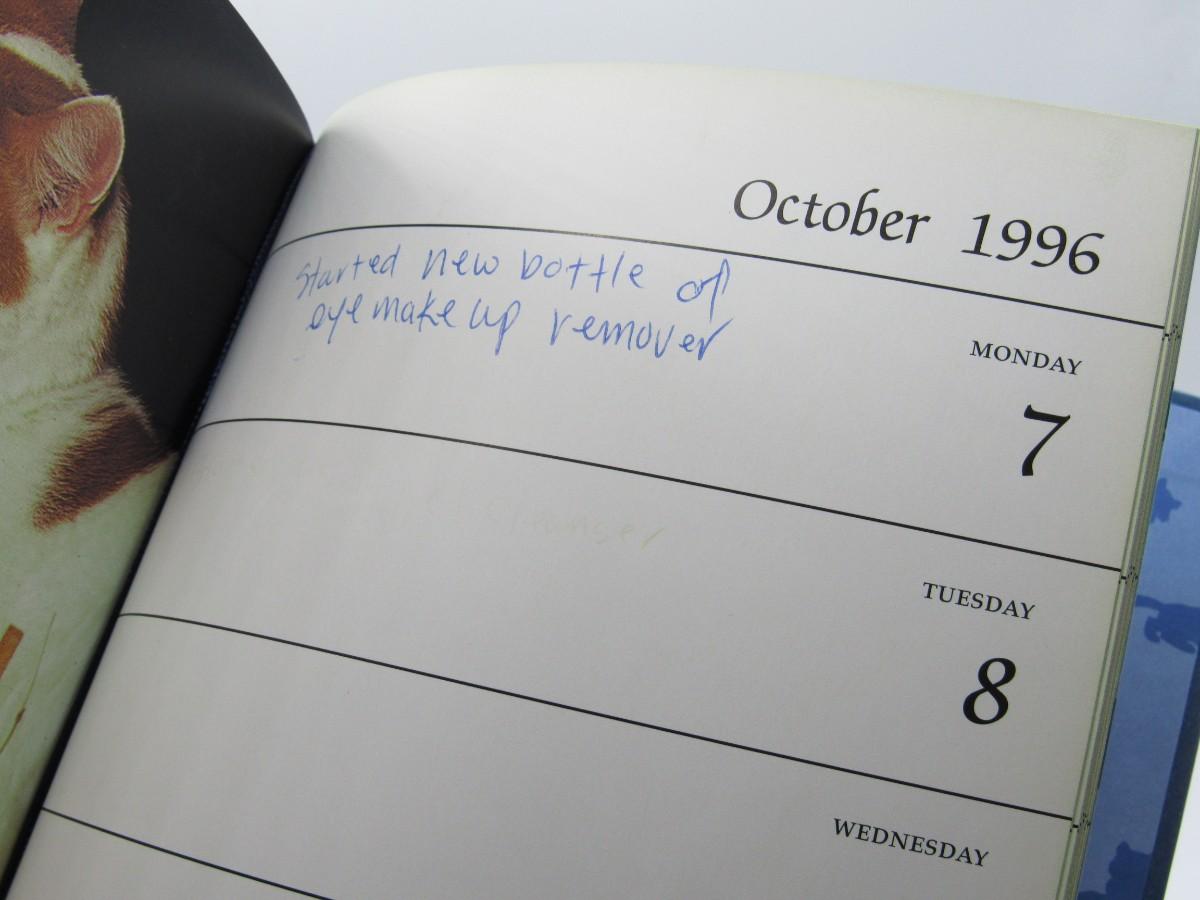 October 1996
Started new bottle of
eye make up remover
MONDAY
7
cleanser
TUESDAY
8
WEDNESDAY